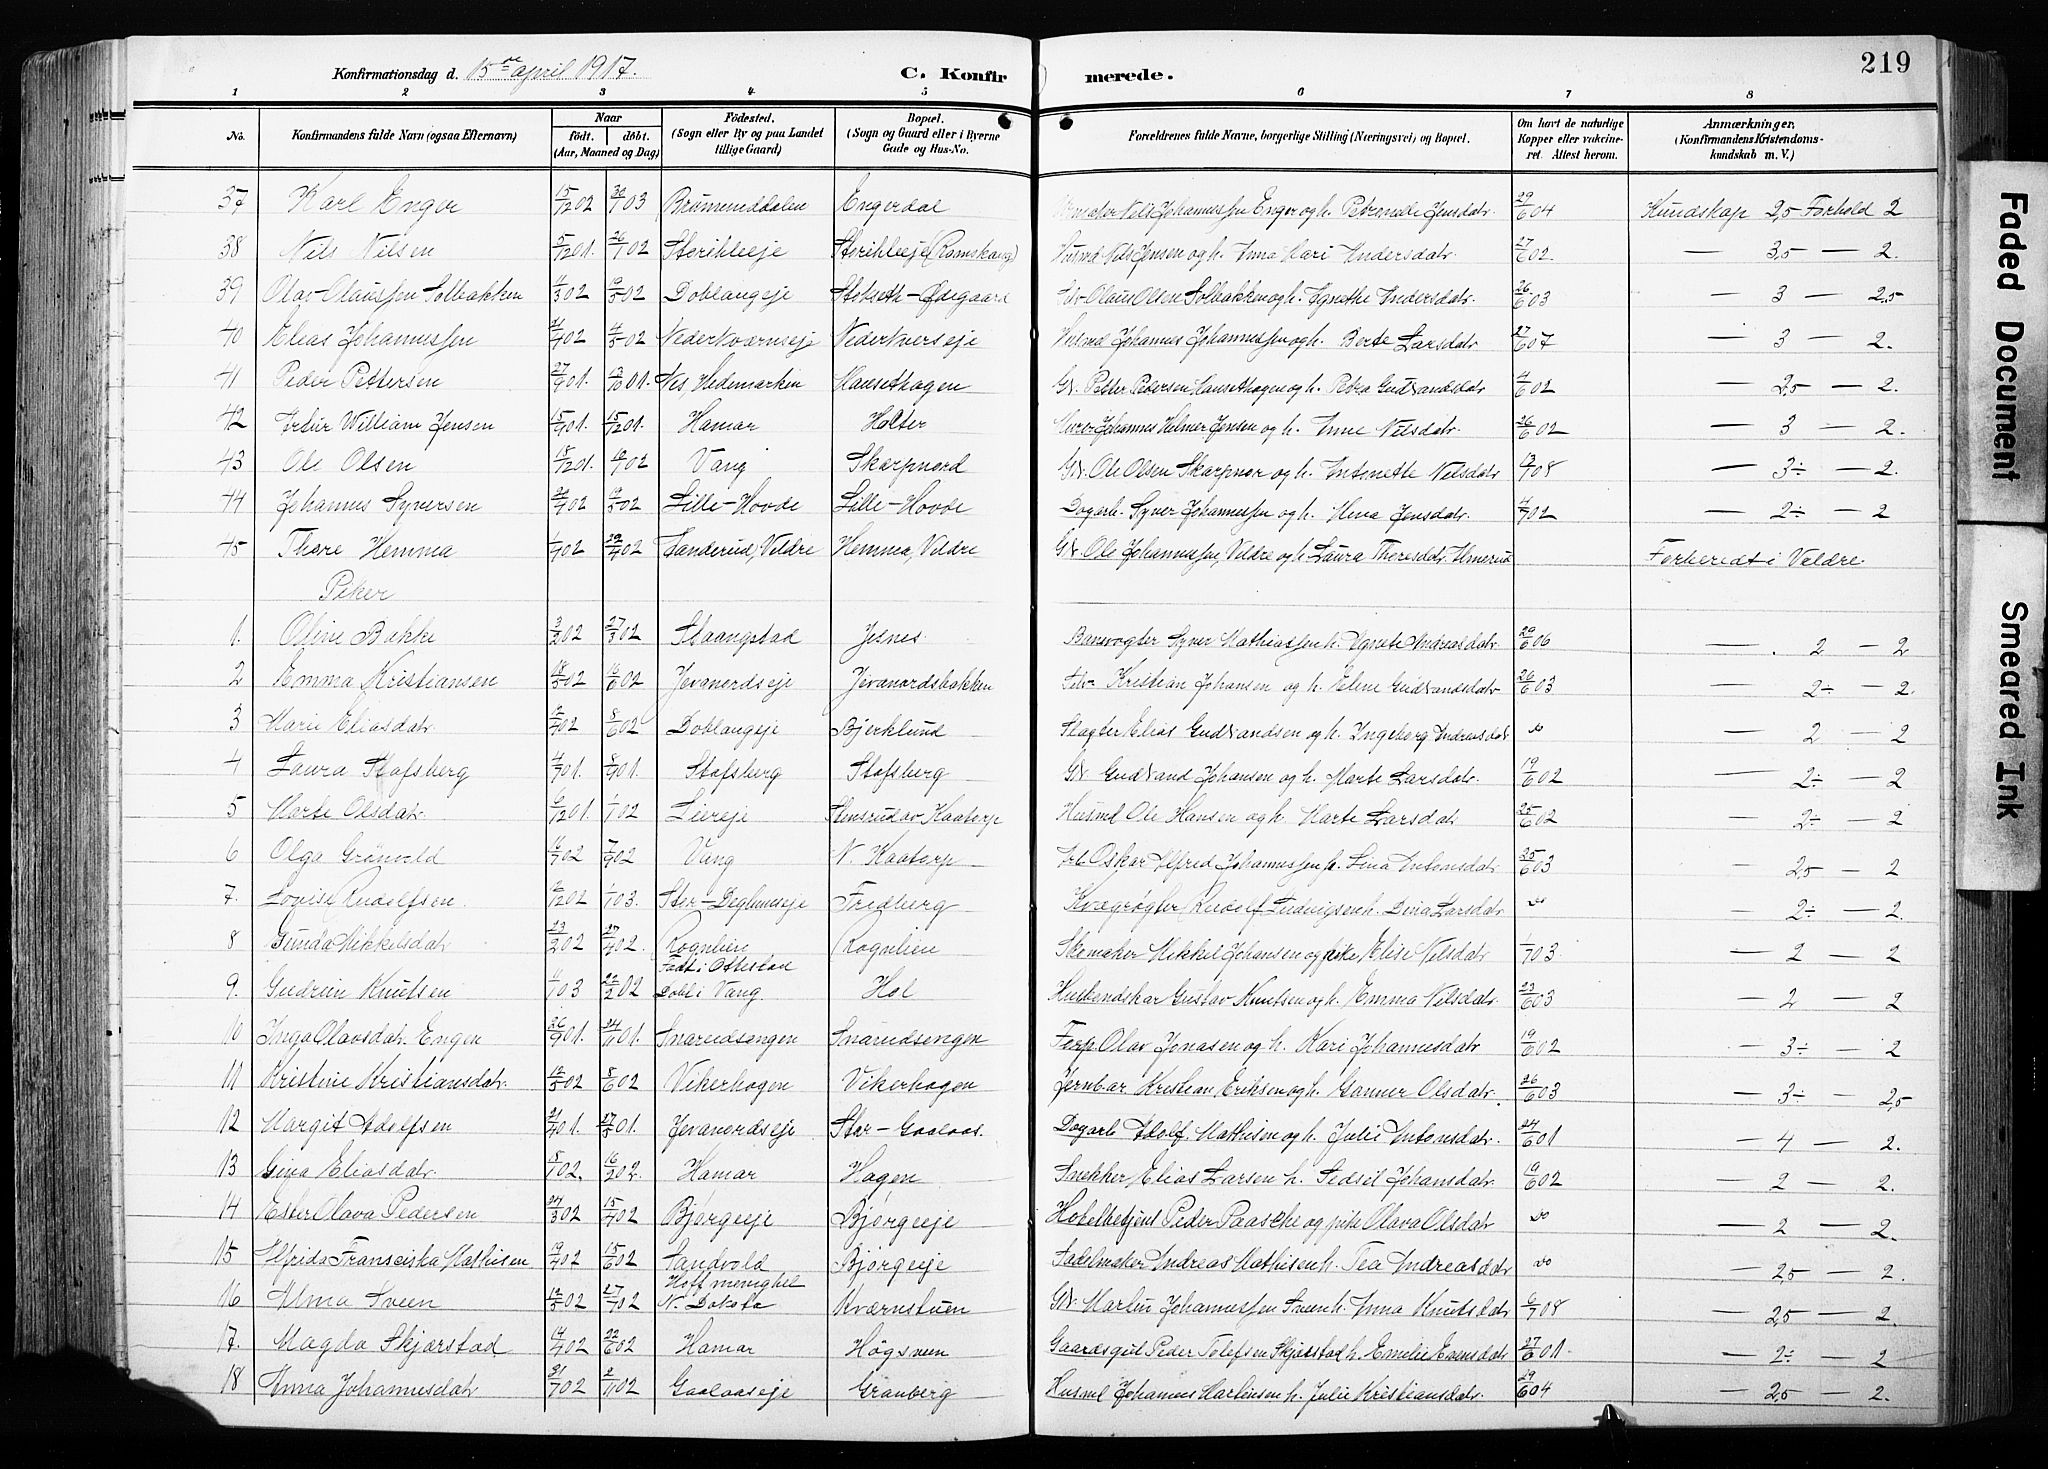 219
Konfirmationsdag d. 15de april 1917. C. Konfir merede.
1 2 3 4 5 6 7 8
No. Konfirmandens fulde Navn (ogsaa Efternavn) Naar født. døbt. (Aar, Maaned og Dag) Fødested. (Sogn eller By og paa Landet tillige Gaard) Bopæl. (Sogn og Gaard eller i Byerne Gade og Hus-No. Forældrenes fulde Navne, borgerlige Stilling (Næringsvei) og Bopæl. Om havt de naturlige Kopper eller vaccineret. Attest herom. Anmærkninger. (Konfirmandens Kristendomskundskab m. V.)
37 Karl Enger 15/12 02 30/1 03 Brumunddalen Engerdal Nils Johannessen Enger og h. Petronelle Jensdatr. 29/6 04 Kundskap 2,5 Forhold 2
38 Nils Nilsen 5/12 01. 26/1 02 Storihleeje Storihleeje (Romskaug) Husmd Nils Jensen og h. Anna Kari Andersdatr. 27/6 02. — 3,5 — 2.
39 Olav Olaussen Solbakken 11/3 02 19/5 02 Doblangeje Stokseth-Ødegaard Olaus Olsen Solbakken og h. Agnethe Andersdatr. 26/6 03 — 3 — 2,5
40 Elias Johannessen 21/4 02 4/5 02 Nederkværnseje Nederkverseje Husmd Johannes Johannessen og h. Berte Larsdatr. 27/6 07 — 3 — 2.
41 Peder Pettersen 27/9 01. 3/10 01. Nes, Hedemarken Hansethagen Gbr. Petter Pedersen Hansethagen og h. Petra Gudbrandsdatr 4/6 02 — 2,5 — 2.
42 Artur William Jensen 15/9 01. 15/12 01. Hamar Holter Johannes Helmer Jensen og h. Anne Nilsdatr. 26/6 02 — 3 — 2.
43 Ole Olsen 18/12 01. 19/1 02 Vang Skarpnord Gbr. Ole Olsen Skarpnor og h. Antonette Nilsdatr 13/7 08 — 3÷ — 2.
44 Johannes Syversen 21/4 02 19/5 02 Lille-Hovde Lille-Hovde Dagarb. Syver Johannessen og h. Anna Jensdatr. 4/7 02 — 2÷ — 2
45 Thore Hemma 1/4 02 29/4 02 Sanderud, Veldre Hemma, Veldre Gbr. Ole Johannessen, Veldre og h. Laura Thoresdatr. Forberedt i Veldre
Piker
1. Oline Bakke 3/2 02 27/3 02 Staangstad Jesnes. Banevogter Syver Mathiassen h. Agnete Andreasdatr. 29/6 06 — 2 — 2
2 Emma Kristiansen 18/5 02 16/6 02 Jevanordseje Jevanordsbakken Kristian Johansen og h. Helene Gudbrandsdatr 26/6 03 — 2÷ — 2.
3 Marie Eliasdatr. 12/4 02 8/6 02 Doblangeje Bjerklund Slagter Elias Gudbrandsen og h. Ingeborg Andreasdatr do — 2 — 2
4 Laura Stafsberg 4/7 01. 8/9 01. Stafsberg Stafsberg Gbr. Gudbrand Johansen og h. Marte Larsdatr. 19/6 02 — 2÷ — 2
5 Marte Olsdatr. 6/12 01. 1/1 02 Liereje Stensrud av Kaatorp Husmd Ole Hansen og h. Marte Larsdatr 25/6 02 — 2÷ — 2
6 Olga Grønvold 11/7 02 7/9 02 Vang N. Kaatorp Arb. Oskar Alfred Johannessen h. Lina Antonsdatr 25/6 03 — 2,5 — 2
7. Lovise Rudolfsen. 12/12 02 1/1 03. Stor-Deglumseje Fredberg Kvægrøgter Rudolf Ludvigsen h. Dina Larsdatr do — 2÷ — 2.
8 Gunda Mikkelsdatr 23/2 02 27/4 02. Rognlien Rognlien Skomaker Mikkel Johansen og pike Elise Nilsdatr 1/7 03. — 2 — 2
9. Gudrun Knutsen 11/1 03 22/2 02 Født i Ottestad Døbt i Vang Hol Gustav Knutsen og h. Emma Nilsdatr. 23/6 03 — 2 — 2
10 Inga Olavsdatr. Engen 26/9 01. 24/11 01. Snarudsengen Snarudsengen Forp. Olav Jonasen og h. Kari Johannesdatr 19/6 02 — 3÷ — 2
11 Kristine Kristiansdatr. 12/5 02 8/6 02 Vikerhagen Vikerhagen Jernbar. Kristian Eriksen og h. Gunner Olsdatr. 26/6 03 — 3÷ — 2,5
12 Margit Adolfsen 21/4 01. 27/5 01. Jevanordseje Stor-Gaalaas. Dagarb Adolf Mathisen og h. Julie Antonsdatr. 24/6 01 — 4 — 2.
13 Gina Eliasdatr. 18/1 02. 16/2 02. Hamar Hagen Snekker Elias Larsen h. Sedsil Johansdatr. 19/6 02 — 2 — 2.
14 Ester Olava Pedersen 24/3 02 15/4 02 Bjørgeeje Bjørgeeje Hotelbetjent Peder Paasche og pike Olava Olsdatr do — 2 — 2.
15 Alfrida Franciska Mathisen 19/4 02 15/6 02 Sandvold Bjørgeeje Sadelmaker Andreas Mathisen h. Tea Andreasdatr do — 2,5 — 2.
16 Alma Sveen 12/5 02 27/7 02 Hoff menighet N. Dakota Kværnstuen Gbr. Martin Johannessen Sveen h. Anna Knutsdatr 6/7 08 — 2,5 — 2.
17. Magda Skjærstad 14/4 02 22/6 02 Hamar Høgsveen Gaardsgut Peder Tolefsen Skjærstad h. Emelie Evensdatr 27/6 01. — 2÷ — 2
18 Anna Johannesdatr 31/7 02 2/11 02 Gaalaaseje Granberg Husmd Johannes Martinsen h. Julie Kristiansdatr. 29/6 04 — 2,5 — 2.
Faded Document
Smeared Ink